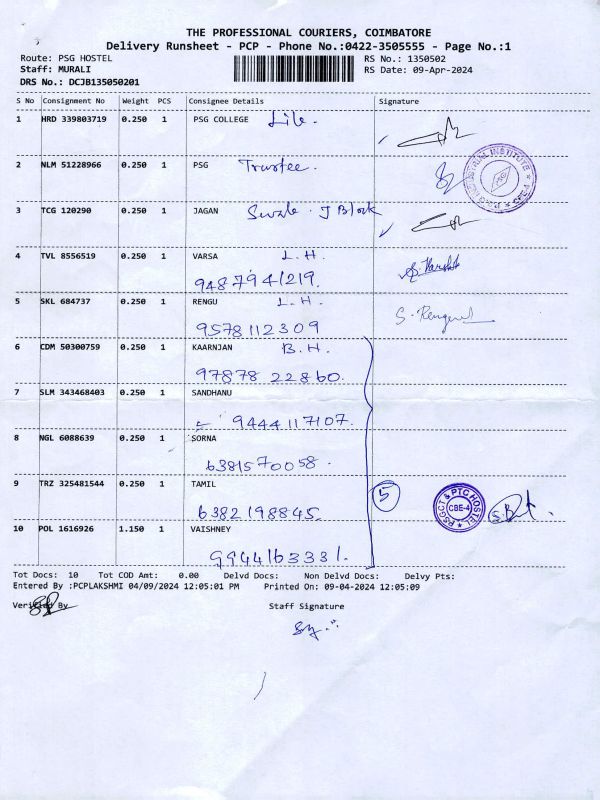 THE PROFESSIONAL COURIERS, COIMBATORE
Delivery Runsheet - PCP - Phone No.:0422-3505555 - Page No.:1
Route: PSG HOSTEL RS No.: 1350502
Staff: MURALI RS Date: 09-Apr-2024
DRS No.: DCJB135050201
S No Consignment No Weight PCS Consignee Details Signature
1 HRD 339803719 0.250 1 PSG COLLEGE Lib.
2 NLM 51228966 0.250 1 PSG Trustee.
3 TCG 120290 0.250 1 JAGAN J Block
4 TVL 8556519 0.250 1 VARSA L.H.
9487941219.
5 SKL 684737 0.250 1 RENGU L.H.
9578112309
6 CDM 50300759 0.250 1 KAARNJAN B.H.
97878 22860.
7 SLM 343468403 0.250 1 SANDHANU
9444117107.
8 NGL 6088639 0.250 1 SORNA
6381570058.
9 TRZ 325481544 0.250 1 TAMIL 5 PSGCT & PTC HOSTEL CBE-4
6382198845.
10 POL 1616926 1.150 1 VAISHNEY
9944163331.
Tot Docs: 10 Tot COD Amt: 0.00 Delvd Docs: Non Delvd Docs: Delvy Pts:
Entered By :PCPLAKSHMI 04/09/2024 12:05:01 PM Printed On: 09-04-2024 12:05:09
Verified By Staff Signature